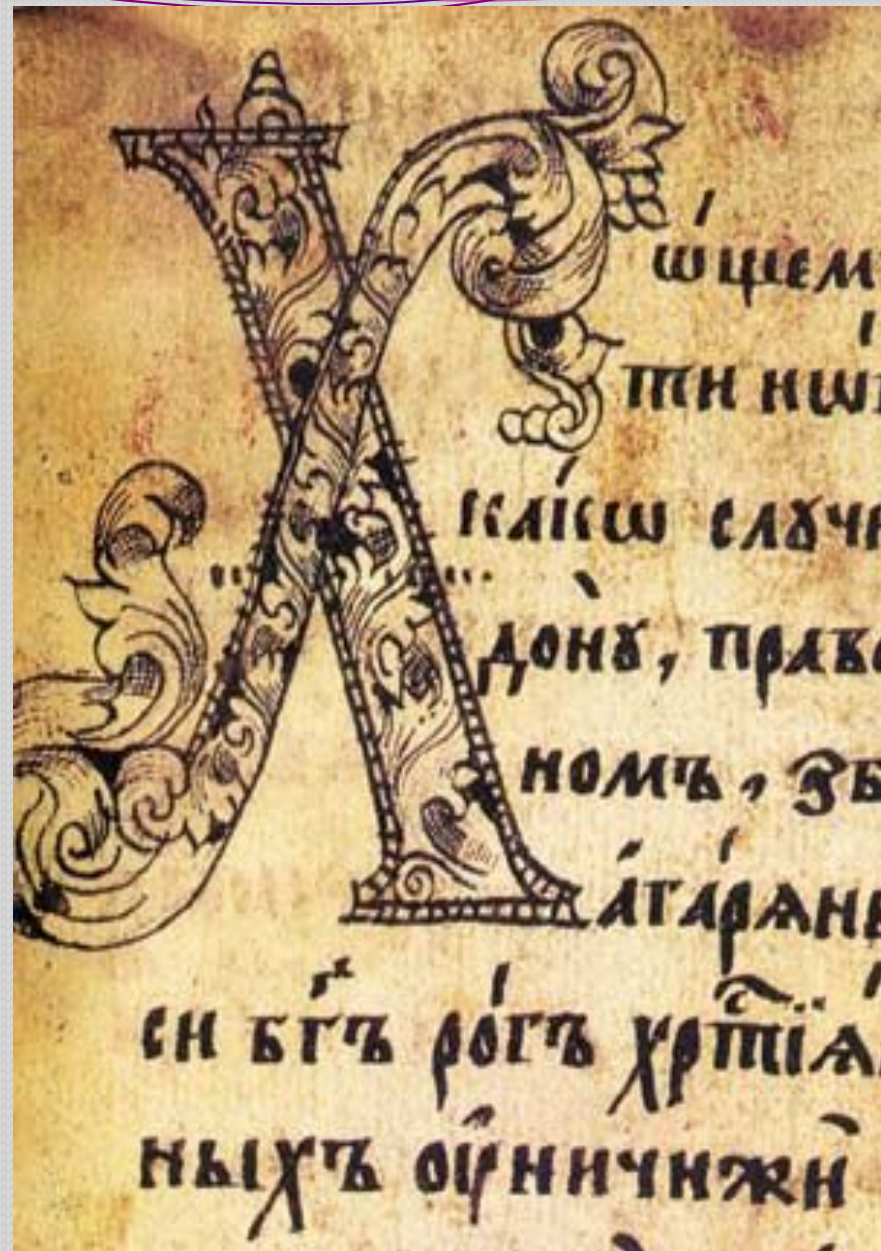 Х
ѡ́щем
ти нѡ
ка́кѡ слꙋч
до́нꙋ, пра
номъ, зб
а́га́рѧн
си бг҃ъ ро́гъ хрⷭ҇тїѧ
ныхъ оу҆ничижѝ